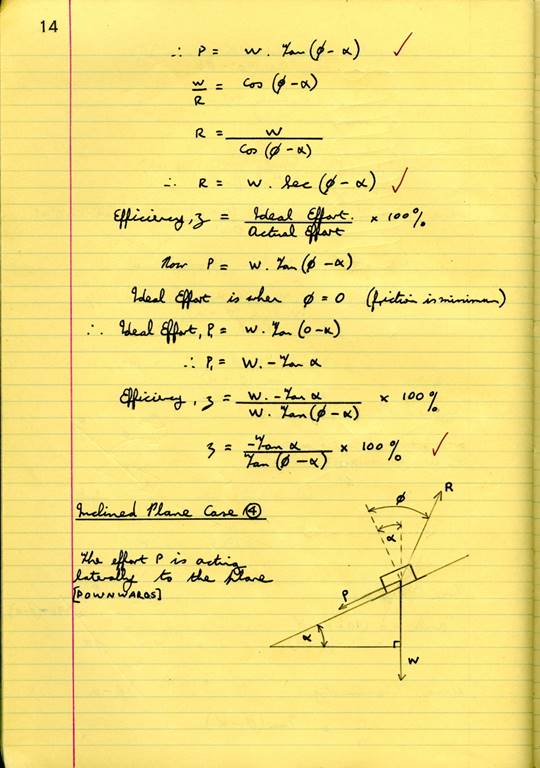 14
∴ P = W. Tan (ϕ - α) ✓
W/R = Cos (ϕ - α)
R = W / Cos (ϕ - α)
∴ R = W. Sec (ϕ - α) ✓
Efficiency, η = Ideal Effort. / Actual Effort × 100%
Now P = W. Tan (ϕ - α)
Ideal Effort is when ϕ = 0 (friction is minimum)
∴ Ideal Effort, P₁ = W. Tan (0 - α)
∴ P₁ = W. - Tan α
Efficiency, η = W. - Tan α / W. Tan (ϕ - α) × 100%
η = -Tan α / Tan (ϕ - α) × 100% ✓
Inclined Plane Case ④
The effort P is acting
laterally to the plane
[DOWNWARDS]
ϕ
R
α
P
α
W